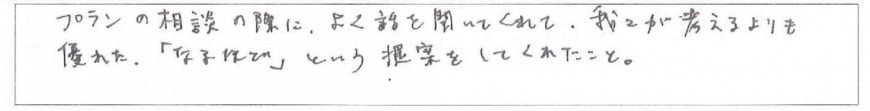 プランの相談の際に、よく話を聞いてくれて、我々が考えるよりも
優れた、「なるほど」という提案をしてくれたこと。